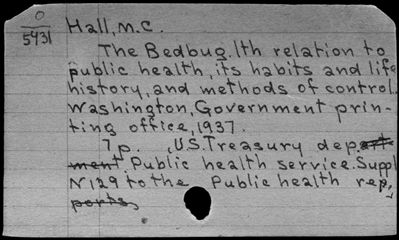 O
5931
Hall, M.C.
The Bedbug. Ith relation to
public health, its habits and life
history, and methods of control.
Washington, Government prin-
ting office, 1937.
7 p. , U.S. Treasury depart-
ment. Public health service. Suppl
N 129 to the Public health rep,
ports,